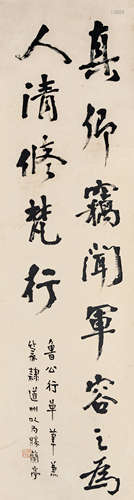 真卿竊聞軍容之為
人清修梵行
魯公行草草兼
篆隸道州以為勝蘭亭